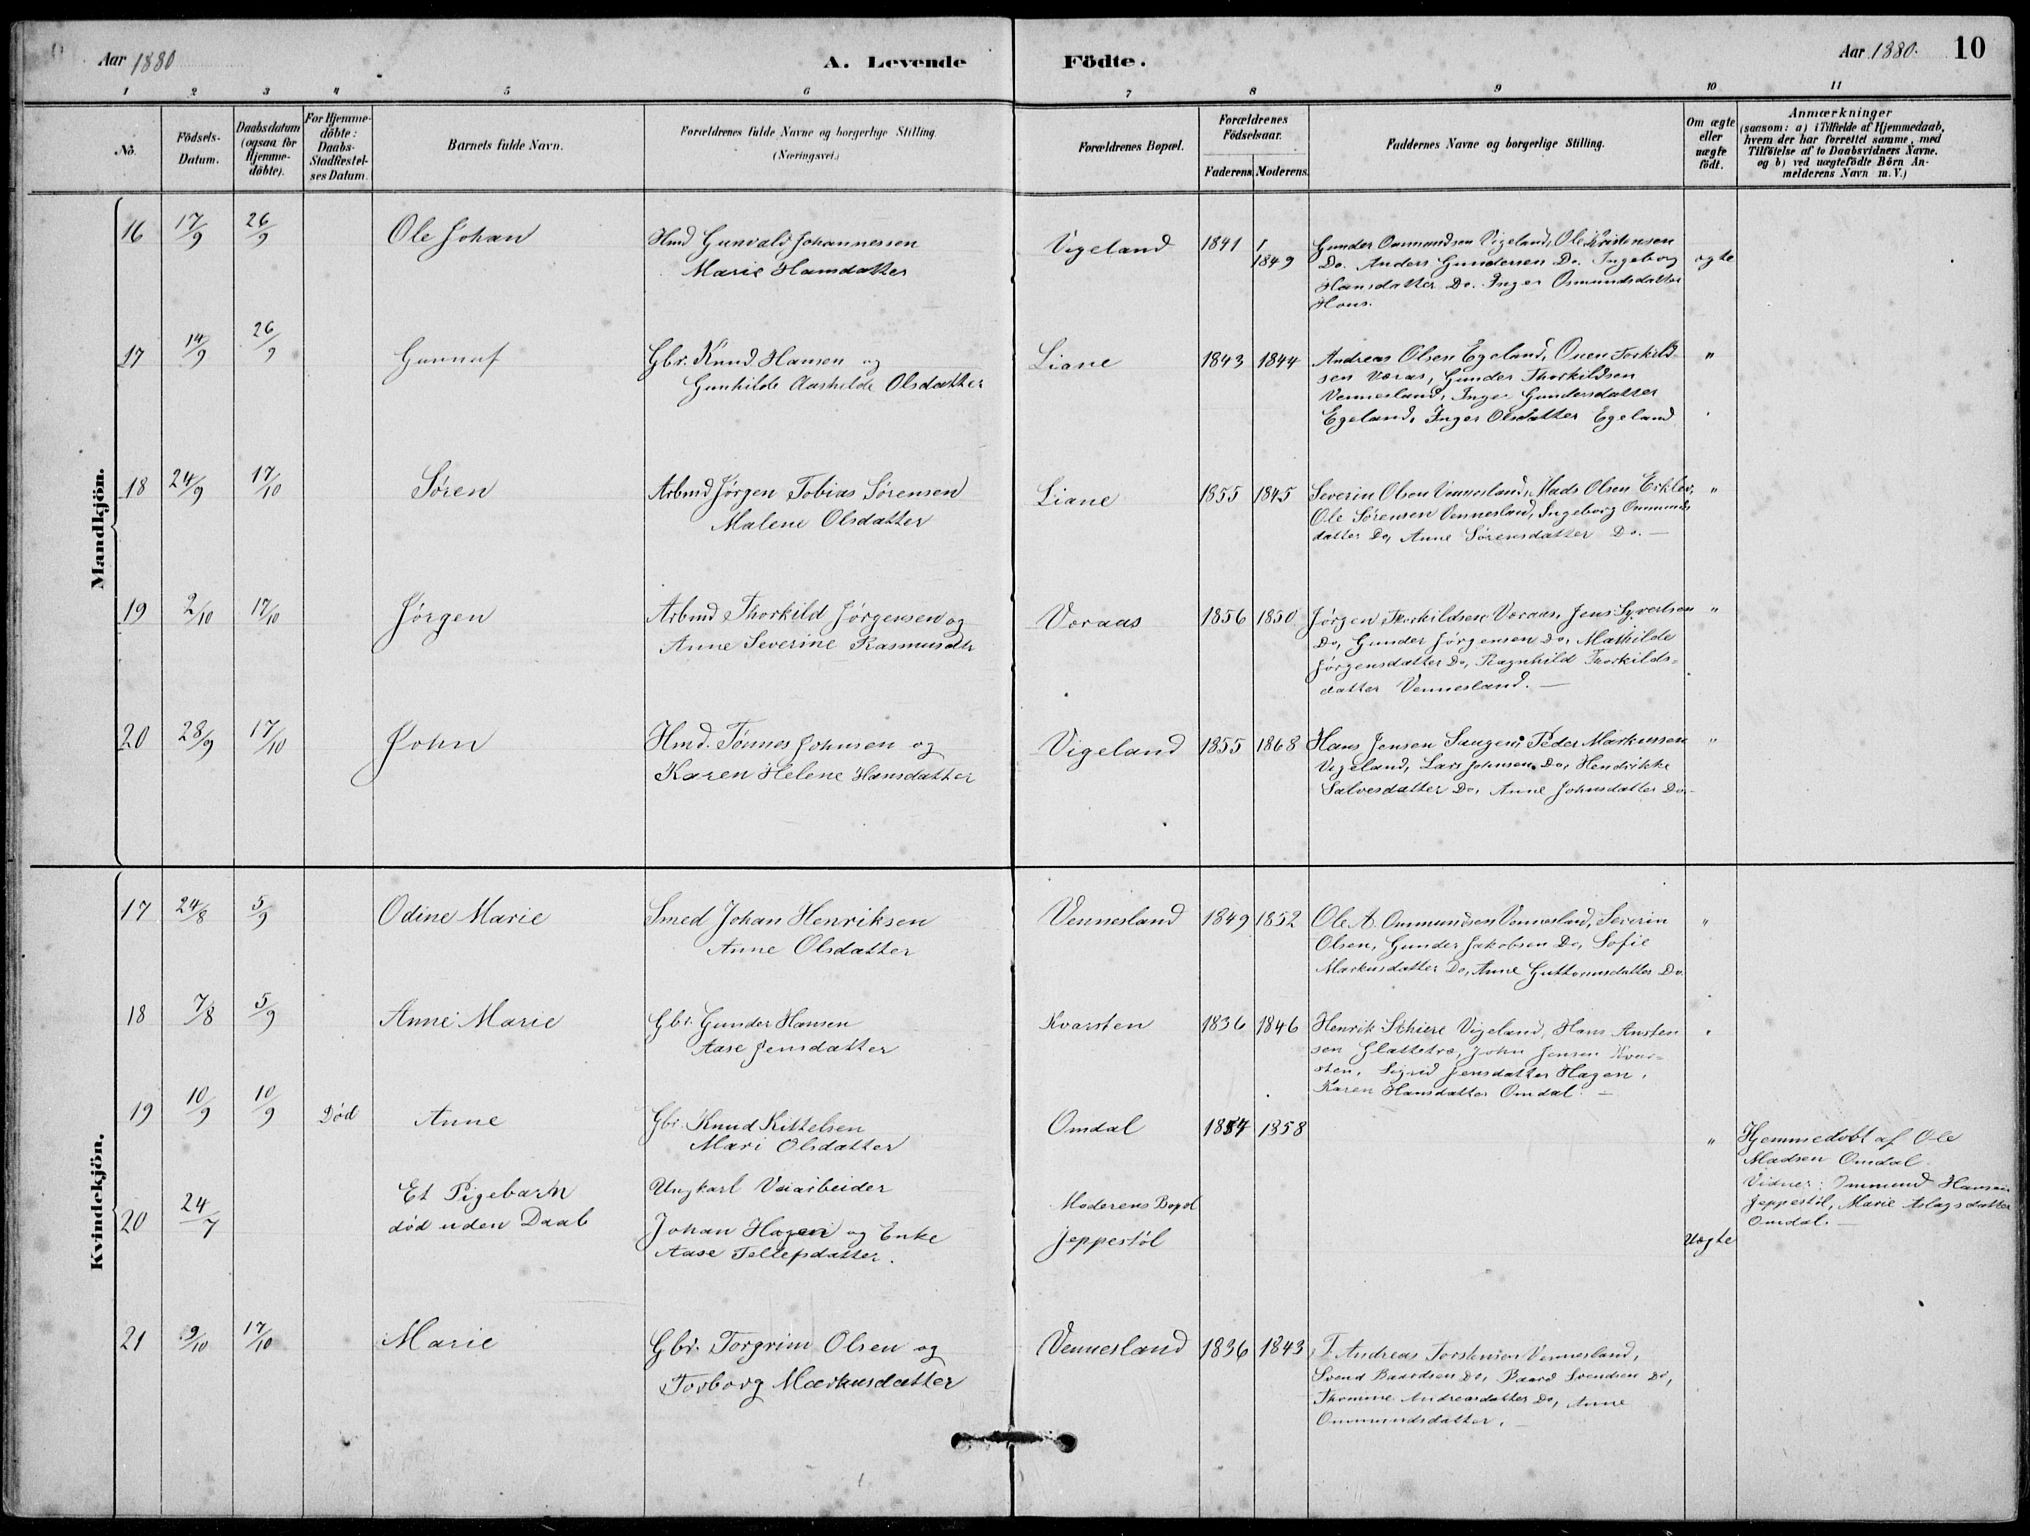 Aar 1880 A. Levende Födte. Aar 1880. 10
1 2 3 4 5 6 7 8 9 10 11
No.
Födsels-Datum.
Daabsdatum (ogsaa for Hjemme-döbte).
For Hjemme-döbte: Daabs-Stadfæstel-ses Datum.
Barnets fulde Navn.
Forældrenes fulde Navne og borgerlige Stilling.
(Næringsvei.)
Forældrenes Bopæl.
Forældrenes Födselsaar.
Faderens Moderens.
Faddernes Navne og borgerlige Stilling.
Om ægte eller uægte födt.
Anmærkninger
(saasom: a) i Tilfælde af Hjemmedaab,
hvem der har forrettet samme, med
Tilföielse af to Daabsvidners Navne.
og b) ved uægtefödte Börn An-
melderens Navn m. V.)
Mandkjön.
16 17/9 26/9 Ole Johan Hmd Gunvald Johannessen Vigeland 1841 1849 Gunder Oanmundsen Vigeland, Ole Kristensen
Marie Hansdatter Do. Anders Gundersen Do. Ingeborg ægte
Hansdatter Do. Inger Osmundsdatter
Hous.
17 14/9 26/9 Gunnuf Gbr. Knud Hansen og Liane 1843 1844 Andreas Olsen Egeland, Onen Torkild "
Gunhilde Aashilde Olsdatter sen Væraas, Gunder Thorkildsen
Vennesland, Inger Gundersdatter
Egeland, Inger Olsdatter Egeland
18 24/9 17/10 Søren Arbmd Jørgen Tobias Sørensen Liane 1855 1845 Severin Olsen Vennesland, Mads Olsen Erklev, "
Malene Olsdatter Ole Sørensen Vennesland, Ingeborg Ommunds
datter Do, Anne Sørensdatter Do. —
19 2/10 17/10 Jørgen Arbmd Thorkild Jørgensen og Voraas 1856 1850 Jørgen Thorkildsen Voraas, Jens Syvertsen "
Anne Severine Rasmusdtr Do, Gunder Jørgensen Do, Mathilde
Jørgensdatter Do, Ragnhild Thorkilds-
datter Vennesland. —
20 28/9 17/10 John Hmd. Tønnes Johnsen og Vigeland 1855 1868 Hans Jensen Saugen, Peder Markussen "
Karen Helene Hansdatter Vigeland, Lars Johnsen Do, Hendrikke
Salvesdatter Do, Anne Johnsdatter Do.
Kvindekjön.
17 24/8 5/9 Odine Marie Smed Johan Henriksen Vennesland 1849 1852 Ole A. Ommundsen Vennesland, Severin "
Anne Olsdatter Olsen, Gunder Jakobsen Do, Sofie
Markusdatter Do, Anne Guttormsdatter Do.
18 7/8 5/9 Anne Marie Gbr. Gunder Hansen Kvarsten 1836 1846 Henrik Schiere Vigeland, Hans Ansten "
Aase Jensdatter sen Glattetre, John Jensen Kvar-
sten, Sigrid Jensdatter Hagen,
Karen Hansdatter Omdal. —
19 10/9 10/9 Død Anne Gbr. Knud Kittelsen Omdal 1854 1858 " Hjemmedøbt af Ole
Mari Olsdatter Madsen Omdal.
Vidner: Ommund Hansen
Jeppestøl, Marie Aslagsdatter
Omdal. —
20 24/7 Et Pigebarn Ungkarl Veiarbeider Moderens Bopæl
død uden Daab Johan Hagen og Enke Jeppestøl Uægte
Aase Tellefsdatter.
21 9/10 17/10 Marie Gbr. Torgrim Olsen og Vennesland 1836 1843 T. Andreas Torstensen Vennesland,
Torborg Markusdatter Svend Baardsen Do, Baard Svendsen Do,
Thomine Andreasdatter Do, Anne
Ommundsdatter. —